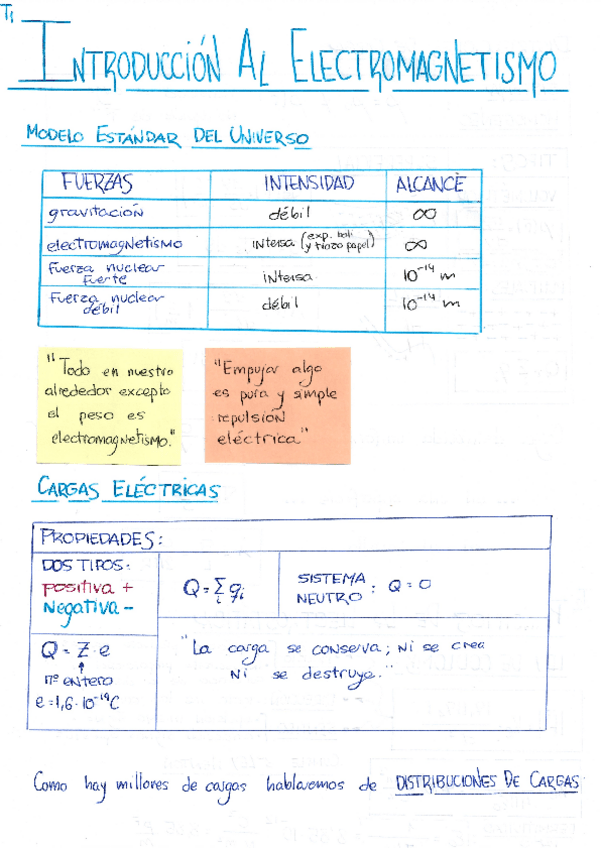 T1
INTRODUCCIÓN AL ELECTROMAGNETISMO
MODELO ESTÁNDAR DEL UNIVERSO
FUERZAS INTENSIDAD ALCANCE
gravitación débil ∞
electromagnetismo intensa (exp. boli y trozo papel) ∞
Fuerza nuclear fuerte intensa 10⁻¹⁴ m
Fuerza nuclear débil débil 10⁻¹⁴ m
"Todo en nuestro
alrededor excepto
el peso es
electromagnetismo."
"Empujar algo
es pura y simple
repulsión
eléctrica"
CARGAS ELÉCTRICAS
PROPIEDADES:
DOS TIPOS:
positiva +
Negativa -
Q = Σᵢ qᵢ
SISTEMA NEUTRO : Q = 0
Q = Z · e
nº entero
e = 1,6 · 10⁻¹⁹ C
"La carga se conserva; ni se crea
ni se destruye."
Como hay millones de cargas hablaremos de DISTRIBUCIONES DE CARGAS